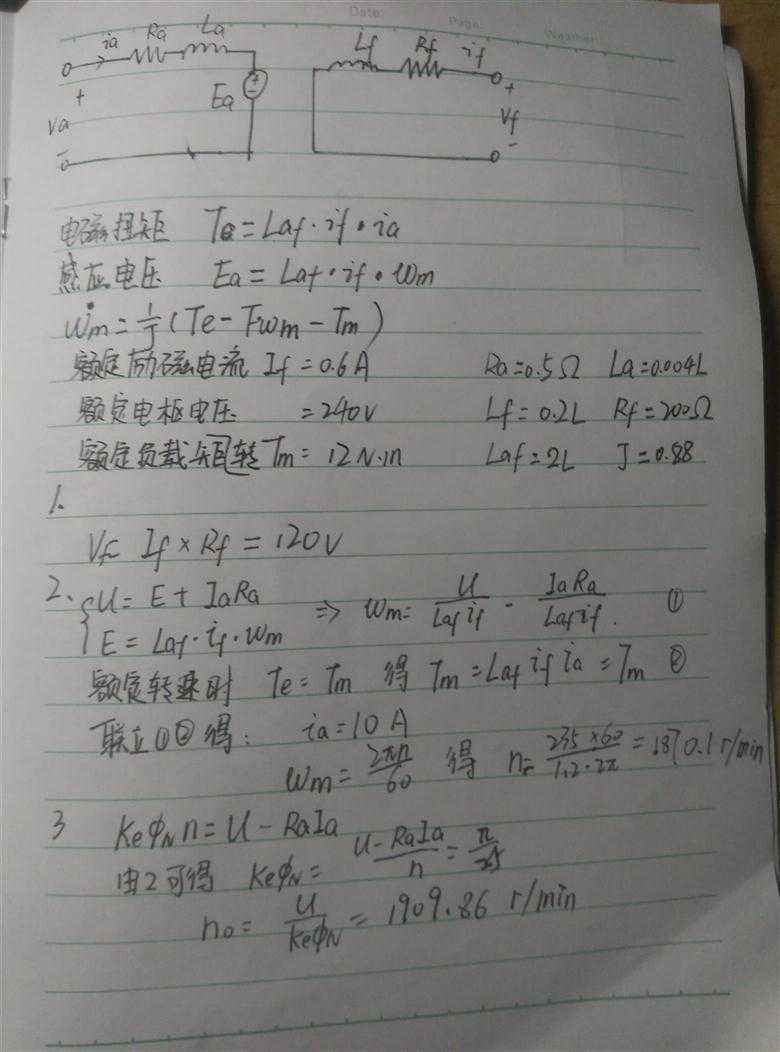 Date
Page
Weather
ia Ra La
Lf Rf if
+ Va -
Ea + -
+ Vf -
电磁扭矩 Te = Laf · if · ia
感应电压 Ea = Laf · if · ωm
ω̇m = 1/J (Te - Fωm - Tm)
额定励磁电流 If = 0.6A Ra = 0.5Ω La = 0.004L
额定电枢电压 = 240V Lf = 0.2L Rf = 200Ω
额定负载矩转 Tm = 12N·m Laf = 2L J = 0.88
1.
Vf = If × Rf = 120V
2. { U = E + IaRa ⇒ ωm = U/(Laf if) - IaRa/(Laf if). ①
E = Laf · if · ωm
额定转速时 Te = Tm 得 Tm = Laf if ia = Tm ②
联立①②得: ia = 10 A
ωm = 2πn/60 得 n = (235×60)/(1.2·2π) = 1870.1 r/min
3 KeφN n = U - RaIa
由2可得 KeφN = (U - RaIa)/n = π/25
n0 = U/KeφN = 1909.86 r/min